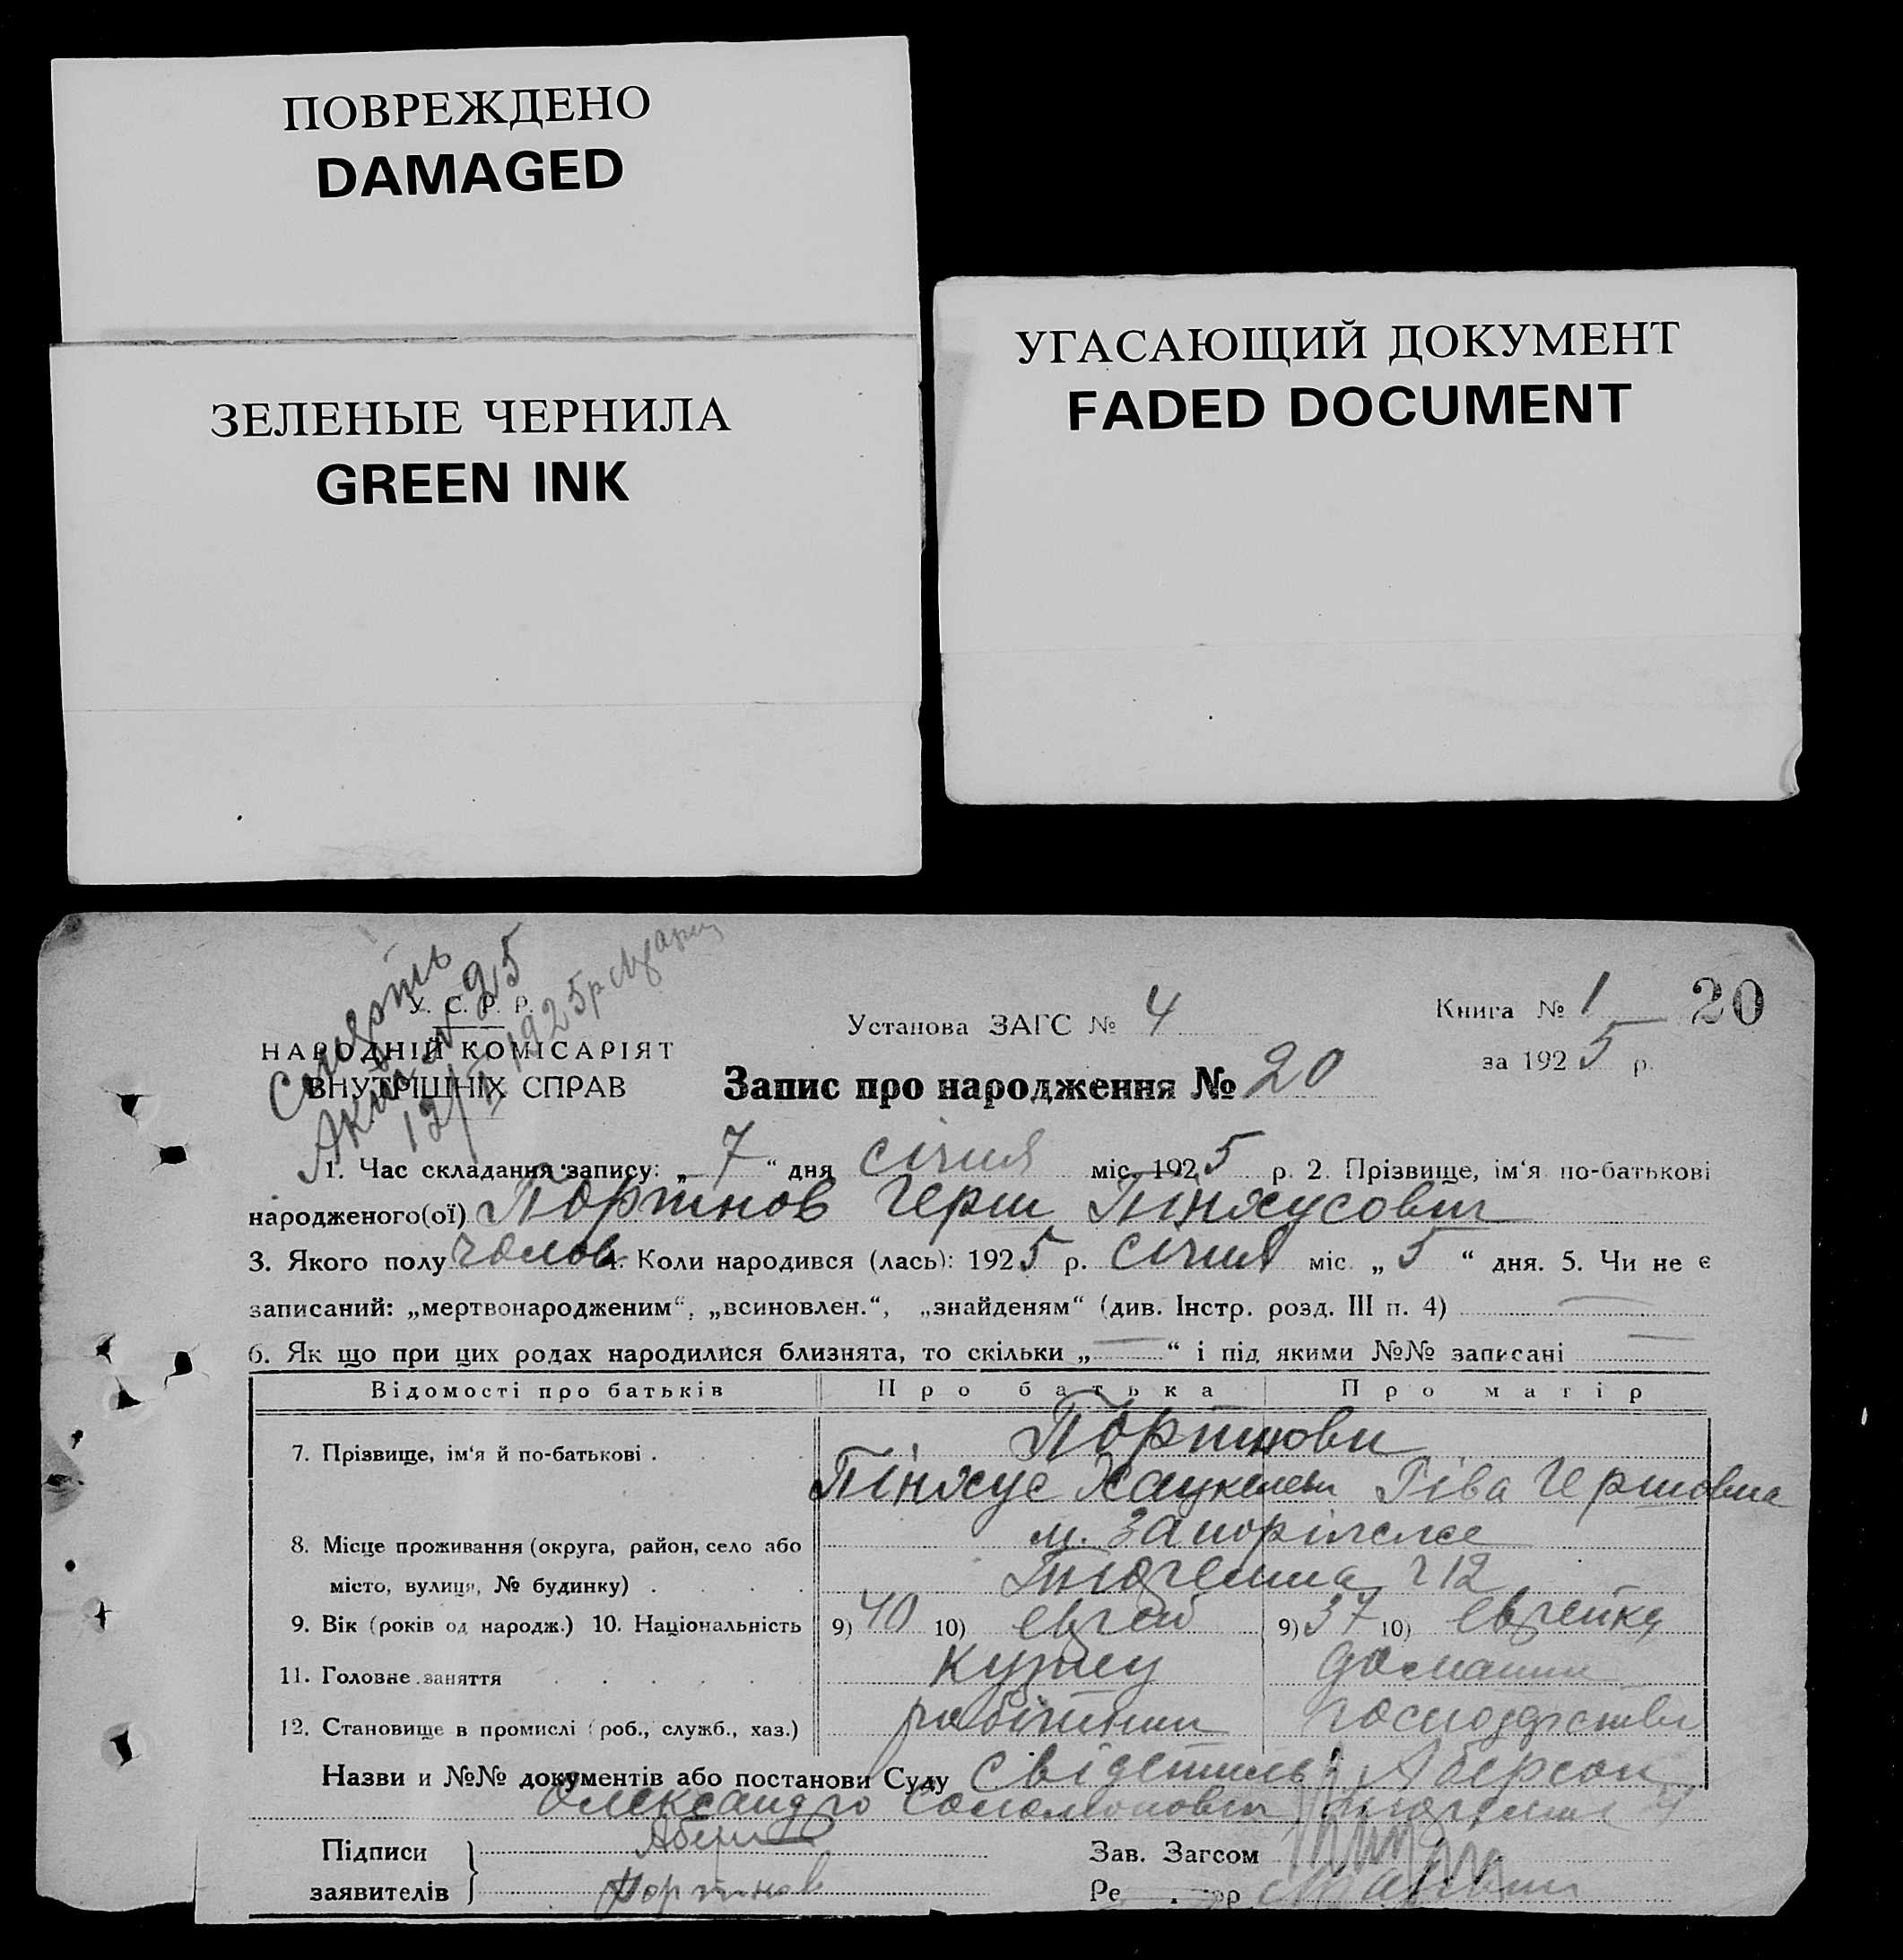 ПОВРЕЖДЕНО
DAMAGED
ЗЕЛЕНЫЕ ЧЕРНИЛА
GREEN INK
УГАСАЮЩИЙ ДОКУМЕНТ
FADED DOCUMENT
Смерть
Акт № 25
1925 р
У. С. Р. Р.
НАРОДНІЙ КОМІСАРІЯТ
ВНУТРІШНІХ СПРАВ
Установа ЗАГС № 4
Книга № 1 20
за 1925 р.
Запис про народження № 20
1. Час складання запису: „ 7 “ дня січня міс. 1925 р. 2. Прізвище, ім‘я по-батькові
народженого(ої) Портнов Герш Пінхусович
3. Якого полу чолов. 4. Коли народився (лась): 1925 р. січня міс. „ 5 “ дня. 5. Чи не є
записаний: „мертвонародженим“, „всиновлен.“, „знайденям“ (див. Інстр. розд. III п. 4)
6. Як що при цих родах народилися близнята, то скільки „ — “ і під якими №№ записані —
Відомості про батьків Про батька Про матір
Портнови
7. Прізвище, ім‘я й по-батькові .
Пінхус Ріва Гершовна
м. Запоріжжє
8. Місце проживання (округа, район, село або
місто, вулиця, № будинку) . ч 12
9. Вік (років од народж.) 10. Національність 9) 40 10) еврей 9) 37 10) еврейка
11. Головне заняття домашнє
12. Становище в промислі (роб., служб., хаз.) робітник господарство
Назви и №№ документів або постанови Суду свідетель Аберсон
Олександр Соломонович
Підписи
заявителів
Портнов
Зав. Загсом